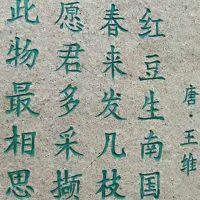 唐·王维
红豆生南国
春来发几枝
愿君多采撷
此物最相思